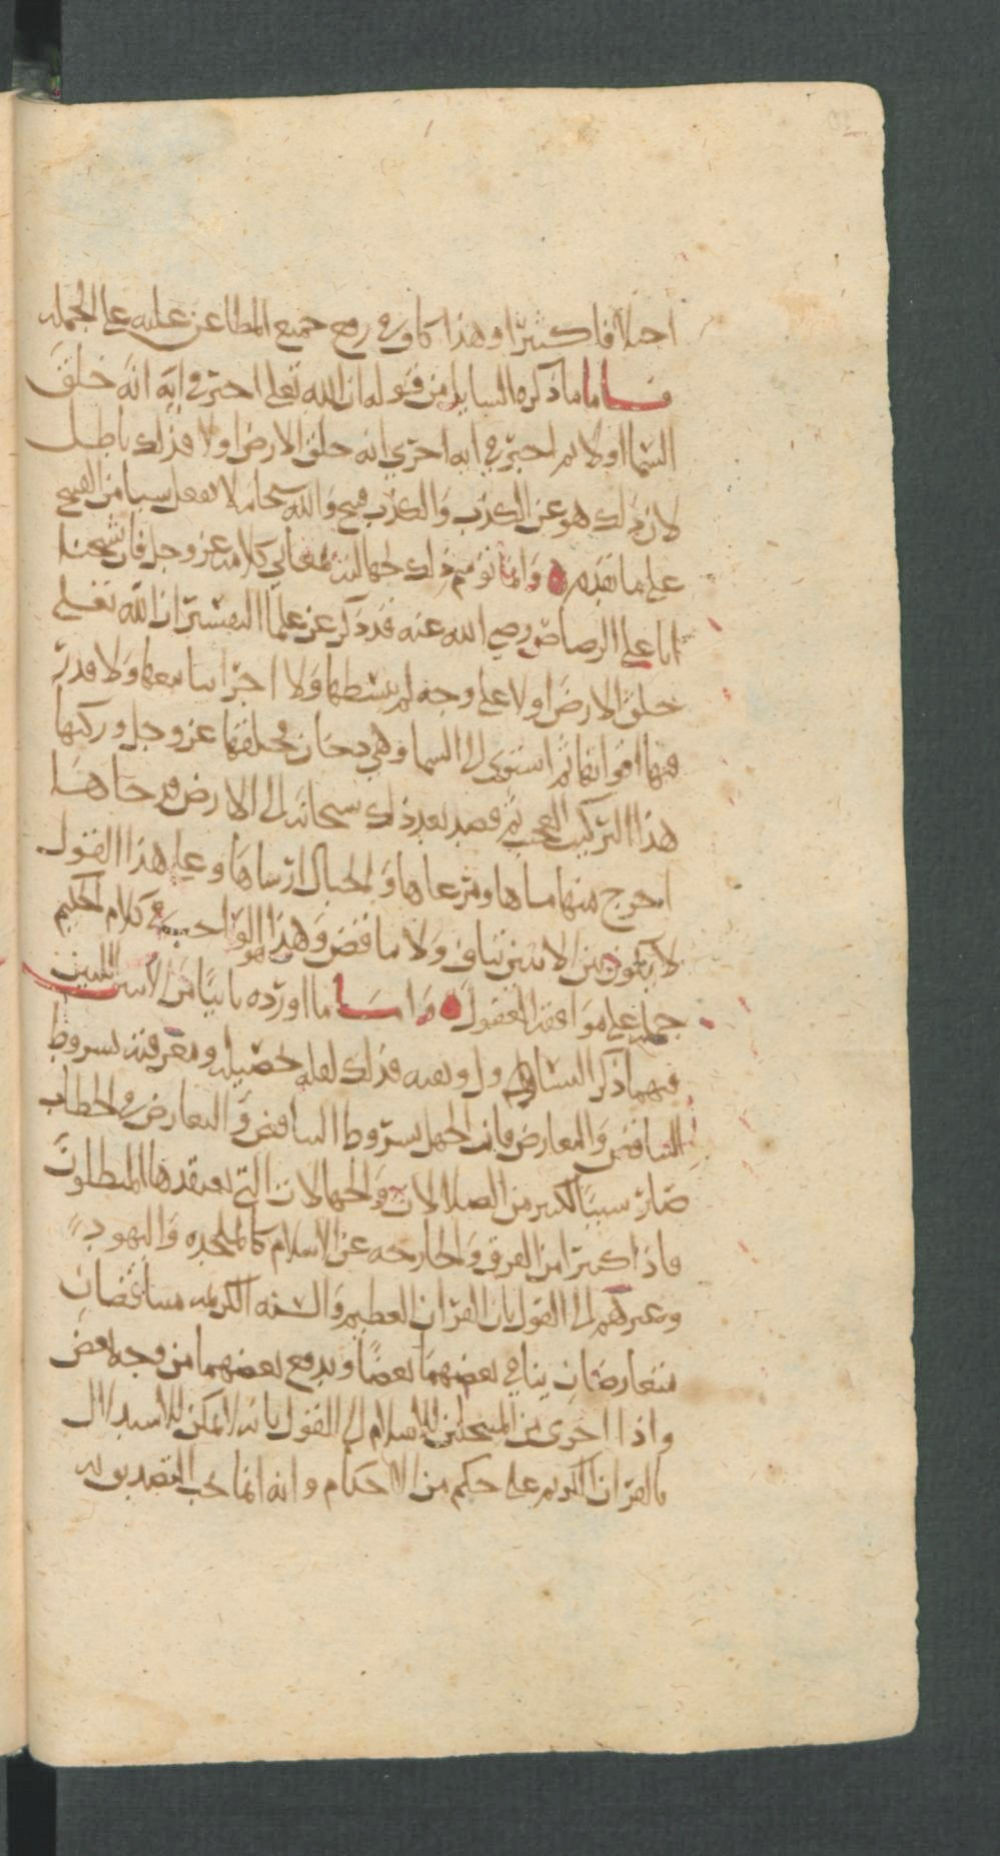 اختلافا كثيرا وهذا كاف في رفع جميع المطاعن عليه على الجمله
فاما ما ذكره السايل من قوله ان الله تعلى اخبر في ايه انه خلق
السما اولا ثم اخبر في ايه اخرى انه خلق الارض اولا فذلك باطل
لان ذلك هو عين الكذب والكذب قبيح والله سبحانه لا يفعل شيا من القبيح
على ما تقدم وانما توهم ذلك لجهالته بمعاني كلامه عز وجل فان شيخنا
ابا علي الرصاص رضي الله عنه قد ذكر عن علما التفسير ان الله تعلى
خلق الارض اولا على وجه لم يبسطها ولا اجرا مياهها ولا قدر
فيها اقواتها ثم استوى الى السما وهي دخان فخلقها عز وجل وركبها
هذا التركيب العجيب ثم قصد بعد ذلك سبحانه الى الارض فدحاها
اخرج منها ماها ومرعاها والجبال ارساها وعلى هذا القول
لا يكون بين الايتين تناف ولا تناقض وهذا هو الواجب في كلام الحكيم
حمله على موافقه العقول واما ما اورده ثانيا من الايتين اللتين
فيهما ذكر التساؤل ونفيه فذلك لقله تحصيله ومعرفته بشروط
التناقض والتعارض فان الجهل بشروط التناقض والتعارض في الخطاب
صار سببا لكثير من الضلالات والجهالات التي يعتقدها المبطلون
فاذا كثيرا من الفرق والخارجه عن الاسلام كالملحده واليهود
وغيرهم الى القول بان القران العظيم والسنه الكريمه متناقضان
متعارضان ينافي بعضهما بعضا ويدفع بعضهما من وجه بعض
واذا اخرى من المنتحلين للاسلام الى القول بانه لا يمكن الاستدلال
بالقران الكريم على حكم من الاحكام وانه انما يجب التصديق به